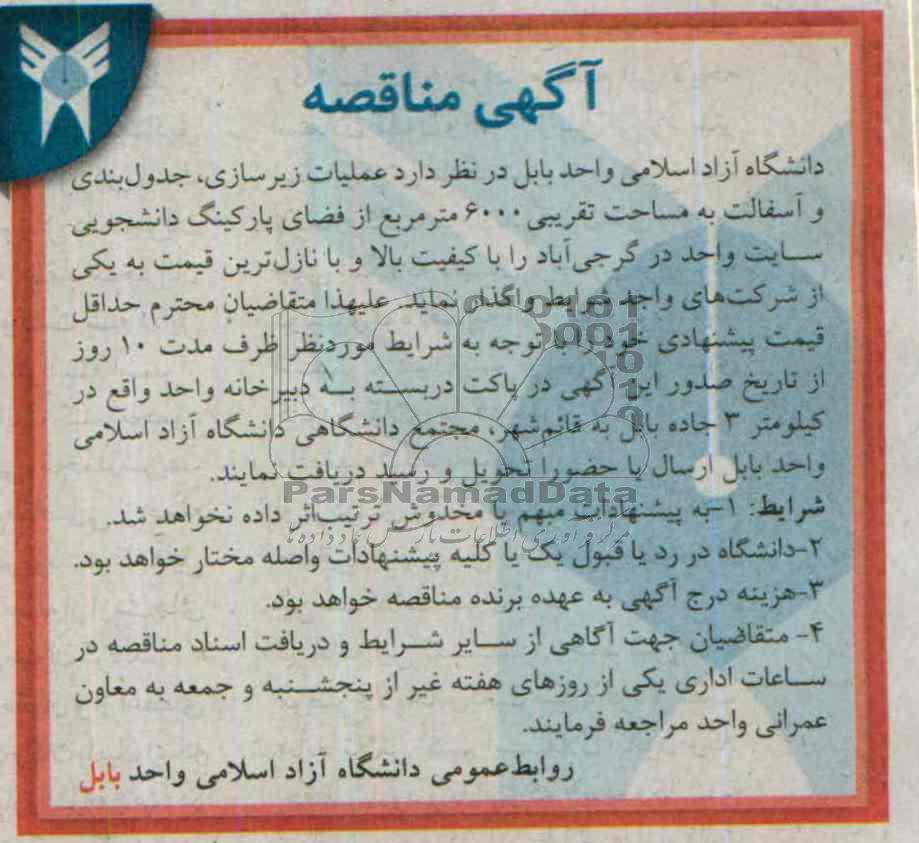 آگهی مناقصه
دانشگاه آزاد اسلامی واحد بابل در نظر دارد عملیات زیرسازی، جدول‌بندی
و آسفالت به مساحت تقریبی ۶۰۰۰ مترمربع از فضای پارکینگ دانشجویی
سایت واحد در گرجی‌آباد را با کیفیت بالا و با نازل‌ترین قیمت به یکی
از شرکت‌های واجد شرایط واگذار نماید. علیهذا متقاضیان محترم حداقل
قیمت پیشنهادی خود را با توجه به شرایط موردنظر ظرف مدت ۱۰ روز
از تاریخ صدور این آگهی در پاکت دربسته به دبیرخانه واحد واقع در
کیلومتر ۳ جاده بابل به قائم‌شهر، مجتمع دانشگاهی دانشگاه آزاد اسلامی
واحد بابل ارسال یا حضورا تحویل و رسید دریافت نمایند.
ParsNamadData
شرایط: ۱-به پیشنهادات مبهم یا مخدوش ترتیب‌اثر داده نخواهد شد.
۲-دانشگاه در رد یا قبول یک یا کلیه پیشنهادات واصله مختار خواهد بود.
۳-هزینه درج آگهی به عهده برنده مناقصه خواهد بود.
۴- متقاضیان جهت آگاهی از سایر شرایط و دریافت اسناد مناقصه در
ساعات اداری یکی از روزهای هفته غیر از پنجشنبه و جمعه به معاون
عمرانی واحد مراجعه فرمایند.
روابط‌عمومی دانشگاه آزاد اسلامی واحد بابل